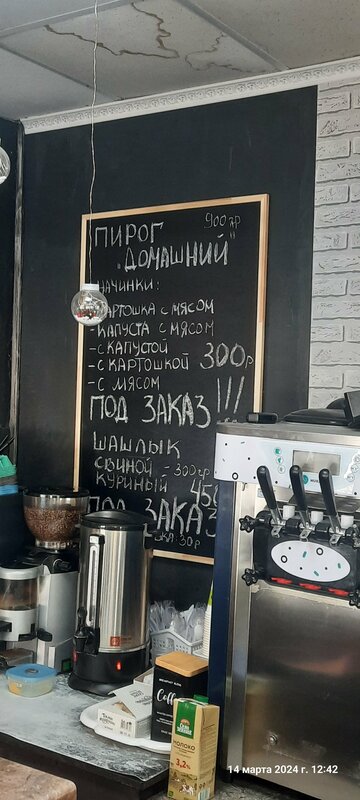 ПИРОГ 900гр
"ДОМАШНИЙ"
НАЧИНКИ:
КАРТОШКА С МЯСОМ
-КАПУСТА С МЯСОМ
-С КАПУСТОЙ
-С КАРТОШКОЙ 300р
-С МЯСОМ
ПОД ЗАКАЗ !!!
ШАШЛЫК
СВИНОЙ - 300гр
КУРИНЫЙ 450
ПОД ЗАКАЗ
30р
Coffee
МОЛОКО
3,2%
14 марта 2024 г. 12:42